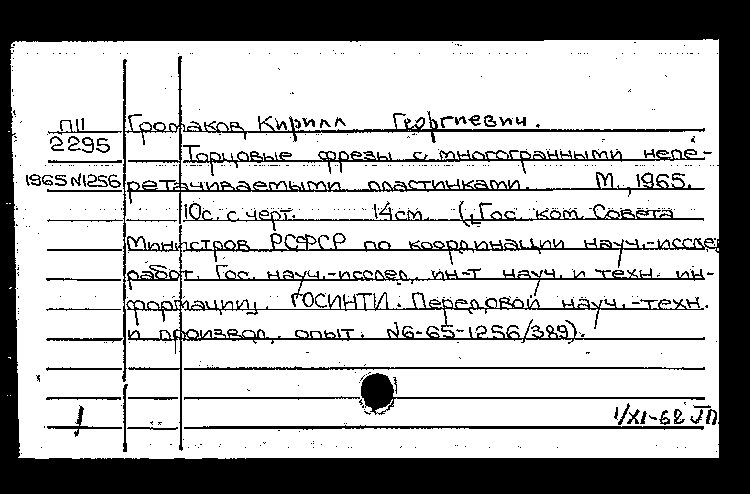 П11 Громаков, Кирилл Георгиевич.
2295 Торцовые фрезы с многогранными непе-
1965 N1256 ретачиваемыми пластинками. М., 1965.
10с. с черт. 14см. („Гос. ком. Совета
Министров РСФСР по координации науч.-исслед
работ. Гос. науч.-исслед. ин-т науч. и техн. ин-
формации. ГОСИНТИ. Передовой науч.-техн.
и производ. опыт. N6-65-1256/389).
1/XI-68